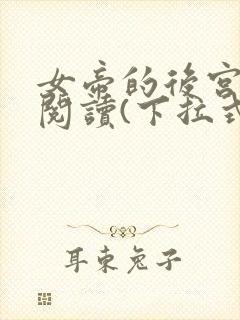 女帝的後宮
閱讀(下拉式
耳東兔子